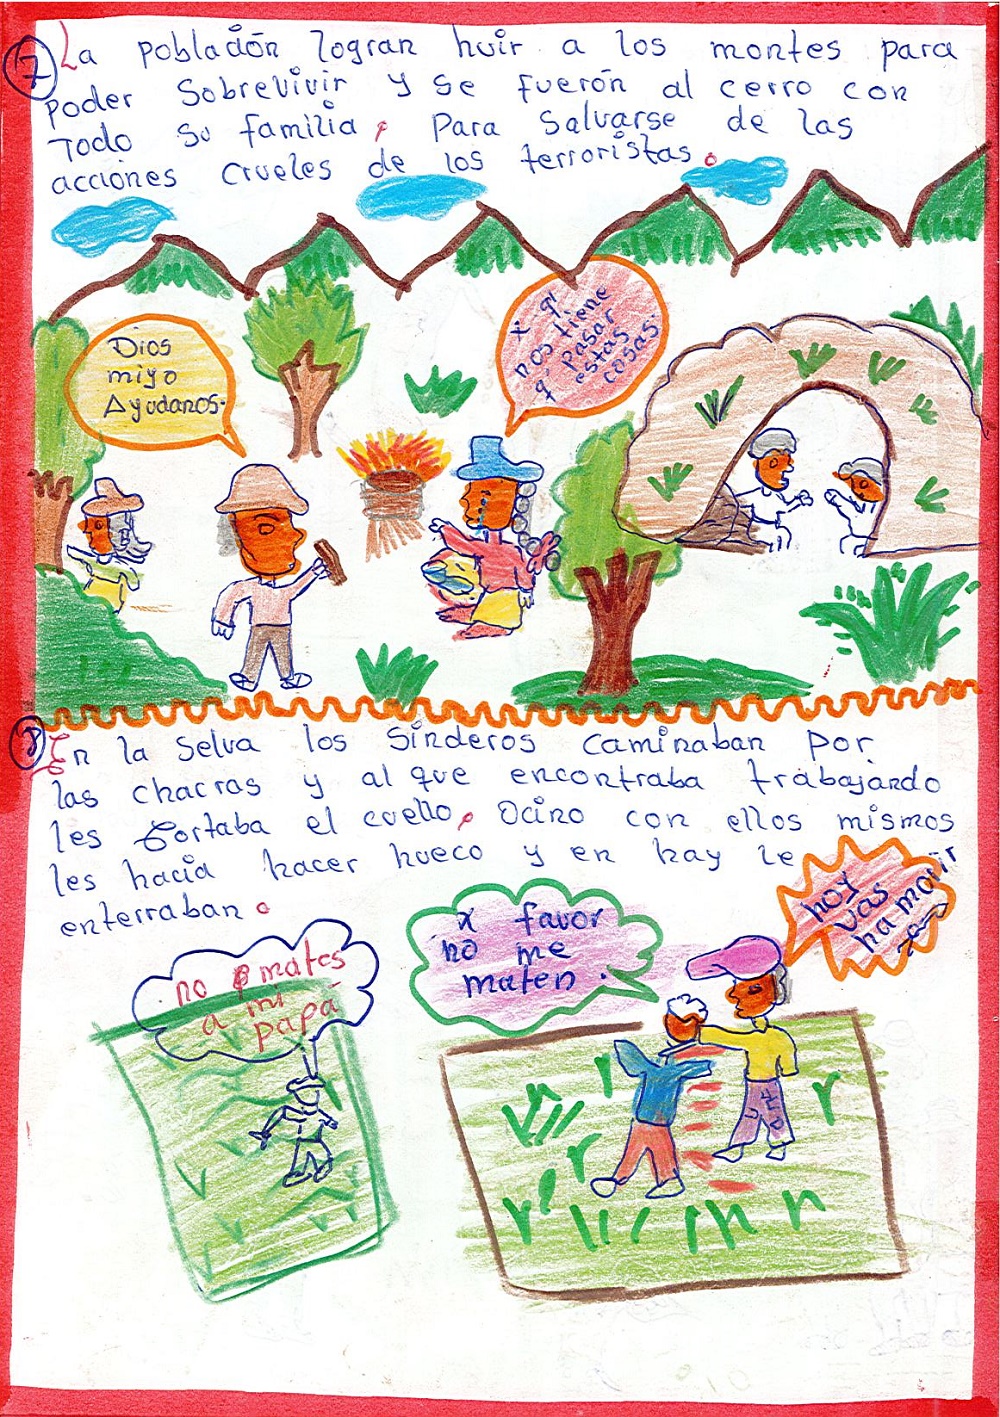 7 La población logran huir a los montes para
poder Sobrevivir y se fuerón al cerro con
Todo su familia, Para Salvarse de las
acciones crueles de los terroristas.
Dios
miyo
Ayudanos.
x q'
nos tiene
q' pasar
estas
cosas.
8 En la selva los Sinderos caminaban por
las chacras y al que encontraba trabajando
les Cortaba el cuello, Ocino con ellos mismos
les hacia hacer hueco y en hay le
enterraban.
no mates
a mi
papá
x favor
no me
maten.
hoy
vas
ha morir